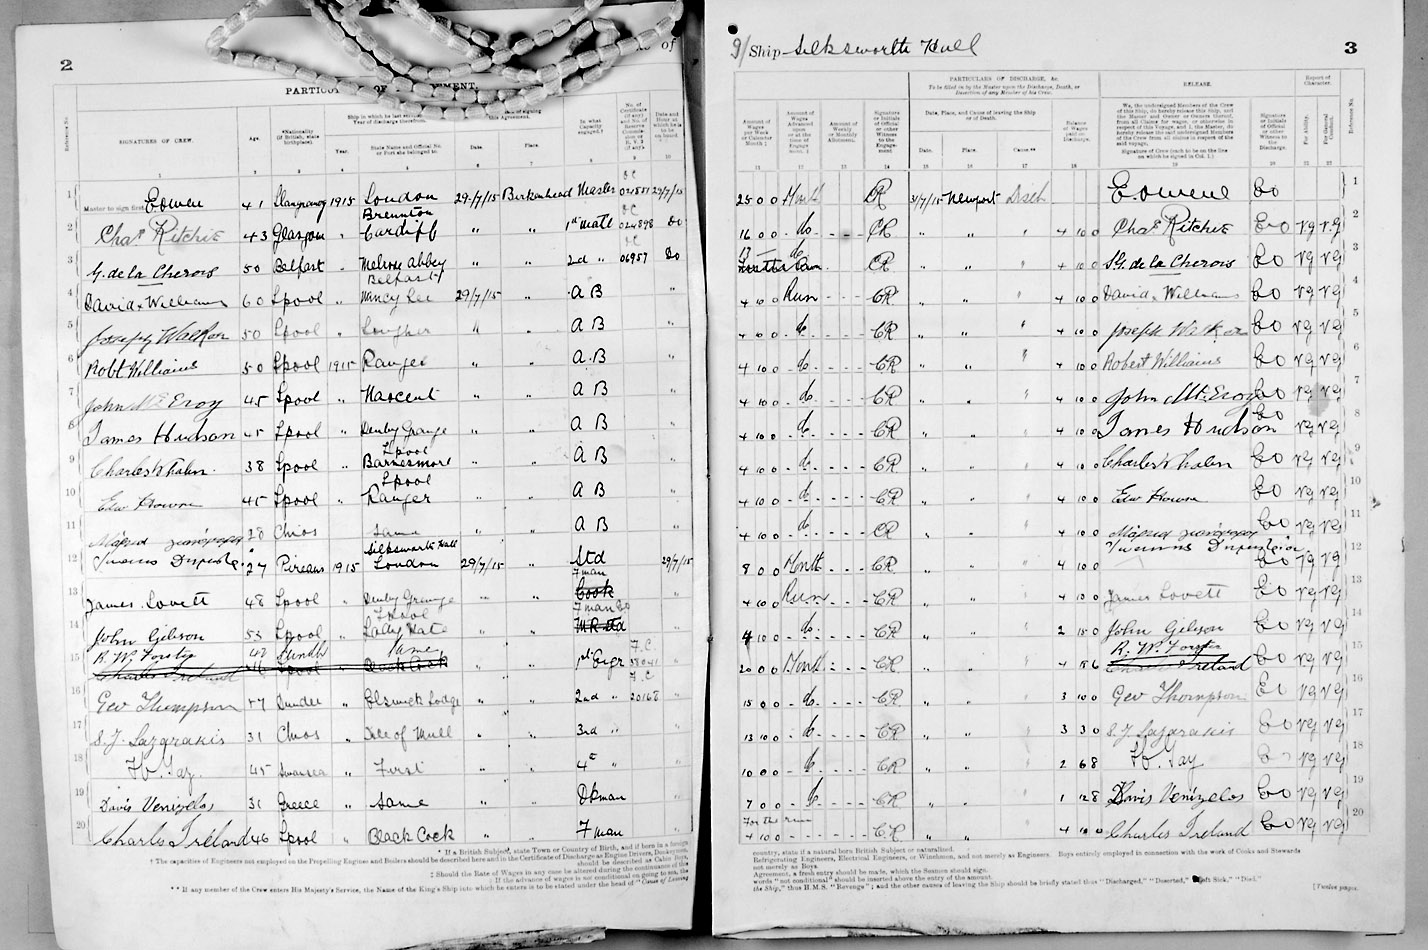 2
PARTICU OF EMENT.
of
Reference No.
SIGNATURES OF CREW.
Age.
Nationality
(If British, state birthplace).
Ship in which he last
Year of discharge therefrom.
Year.
State Name and Official No. or Port she belonged to.
of signing this Agreement.
Date.
Place.
In what Capacity engaged.
Date and Hour at which he is to be on board.
1 Master to sign first E Owen 41 1915 London 29/7/15 Birkenhead Master 29/7/15
2 Chas Ritchie 43 Glasgow " Cardiff " " 1st Mate 024898 Do
3 G. de la Cherois 50 Belfast " Melrose Abbey " " 2nd " 06957 Do
Belfast
4 David Williams 60 Lpool " Nancy Lee 29/7/15 " A B "
5 Joseph Walker 50 Lpool " " " A B "
6 Robt Williams 50 Lpool 1915 Ranger " " A.B "
7 John McEroy 45 Lpool " Nascent " " A B "
8 James Hudson 45 Lpool " Denby Grange " " A B "
Lpool
9 Charles Whalen 38 Lpool " Barnesmore " " A B "
Lpool
10 45 Lpool " Ranger " " A B "
11 28 Chios Same " " A B "
Silksworth Hall
12 27 Pireaus 1915 London 29/7/15 " Std 29/7/15
F man
13 James Lovett 48 Lpool " Denby Grange " " Cook "
Lpool F man
14 John Gibson 53 Lpool " " "
R. W. Forster 42 Same F.C.
15 Charles Ireland 46 Lpool " Black Cock " " 1st Engr 38041 "
F.C.
16 Geo Thompson 47 Dundee " Elswick Lodge " " 2nd " 20168 "
17 S. J. Lazarakis 31 Chios " Isle of Mull " " 3rd " "
18 Gay 45 Swansea " First " " 4th " "
19 Davis Venizelos 31 Greece " Same " " Dkman "
20 Charles Ireland 46 Lpool " Black Cock " " F man "
* If a British Subject, state Town or Country of Birth, and if born in a foreign
† The capacities of Engineers not employed on the Propelling Engines and Boilers should be described here and in the Certificate of Discharge as Engine Drivers, Donkeymen,
should be described as Cabin Boys,
‡ Should the Rate of Wages in any case be altered during the continuance of this
If the advance of wages is not conditional on going to sea, the
** If any member of the Crew enters His Majesty's Service, the Name of the King's Ship into which he enters is to be stated under the head of "Cause of Leaving
9/ Ship Silksworth Hall
3
PARTICULARS OF DISCHARGE, &c.
To be filled in by the Master upon the Discharge, Death, or Desertion of any Member of his Crew.
RELEASE.
Report of Character.
Amount of Wages per Week or Calendar Month
Amount of Wages Advanced upon or at the time of Engagement.
Amount of Weekly or Monthly Allotment.
Signature or Initials of Official or other Witness to the Engagement.
Date, Place, and Cause of leaving the Ship or of Death.
Date.
Place.
Cause.**
Balance of Wages paid on Discharge.
We, the undersigned Members of the Crew of this Ship, do hereby release this Ship, and the Master and Owner or Owners thereof, from all Claims for wages, or otherwise in respect of this Voyage, and I, the Master, do hereby release the said undersigned Members of the Crew from all claims in respect of the said voyage.
Signature of Crew (each to be on the line on which he signed in Col. 1.)
Signature or Initials of Official or other Witness to the Discharge
For Ability.
For General Conduct.
Reference No.
25 0 0 Month CR 31/7/15 Newport Disch E. Owen EO 1
16 0 0 do CR " " " 4 10 0 Chas Ritchie EO VG VG 2
CR " " " 4 10 0 G. de la Cherois EO VG VG 3
4 10 0 Run CR " " " 4 10 0 David Williams EO VG VG 4
4 10 0 do CR " " " 4 10 0 Joseph Walker EO VG VG 5
4 10 0 do CR " " " 4 10 0 Robert Williams EO VG VG 6
4 10 0 do CR " " " 4 10 0 John McEroy EO VG VG 7
4 10 0 do CR " " " 4 10 0 James Hudson EO VG VG 8
4 10 0 do CR " " " 4 10 0 Charles Whalen EO VG VG 9
4 10 0 do CR " " " 4 10 0 EO VG VG 10
4 10 0 do CR " " " 4 10 0 EO VG VG 11
8 0 0 Month CR " " " 4 10 0 EO VG VG 12
4 10 0 Run CR " " " 4 10 0 James Lovett EO VG VG 13
4 10 0 do CR " " " 2 15 0 John Gibson EO VG VG 14
R. W. Forster
20 0 0 Month CR " " " 4 8 6 Charles Ireland EO VG VG 15
15 0 0 do CR " " " 3 10 0 Geo Thompson EO VG VG 16
13 10 0 do CR " " " 3 3 0 S. J. Lazarakis EO VG VG 17
10 0 0 do CR " " " 2 6 8 Gay EO VG VG 18
7 0 0 do CR " " " 1 12 8 Davis Venizelos EO VG VG 19
For the run
4 10 0 CR " " " 4 10 0 Charles Ireland EO VG VG 20
country, state if a natural born British Subject or naturalized.
Refrigerating Engineers, Electrical Engineers, or Winchmen, and not merely as Engineers. Boys entirely employed in connection with the work of Cooks and Stewards
not merely as Boys.
Agreement, a fresh entry should be made, which the Seamen should sign.
words "not conditional" should be inserted above the entry of the amount.
the Ship," thus H.M.S. "Revenge"; and the other causes of leaving the Ship should be briefly stated thus "Discharged," "Deserted," "Left Sick," "Died."
[Twelve pages.